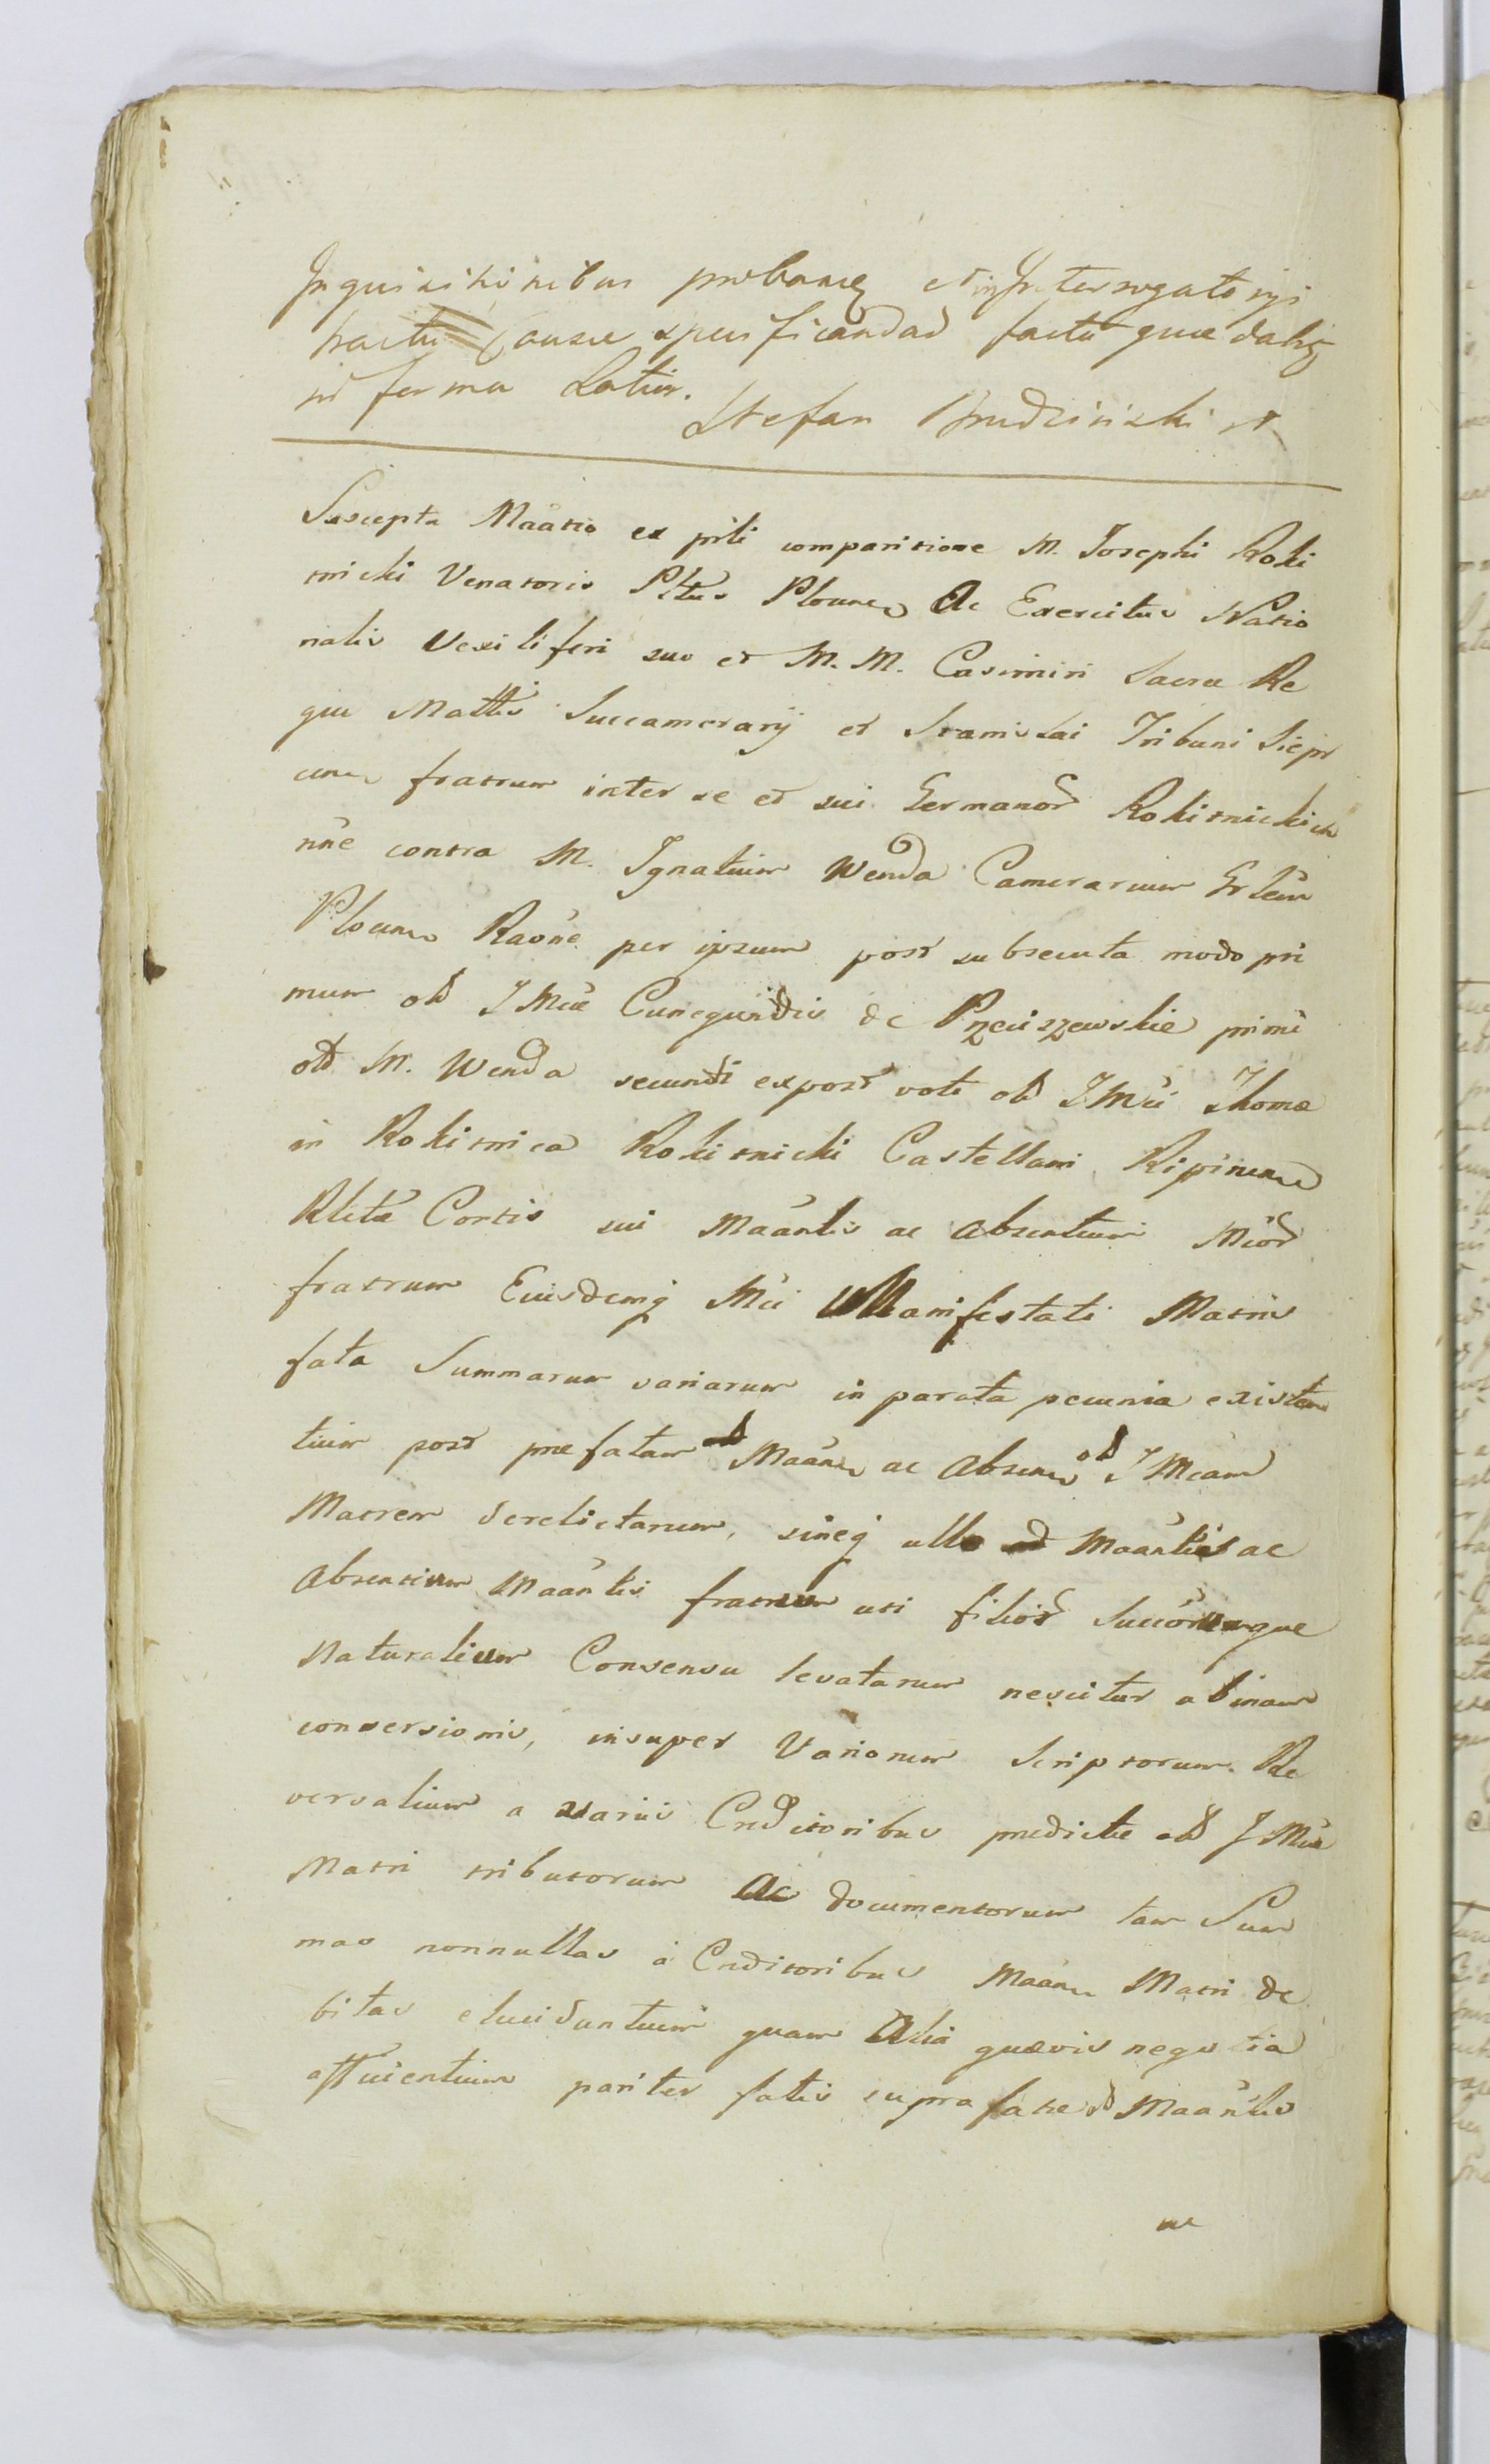 Inquisitionibus probanq et in Interrogatorijs
tractu Causae specificandad factu quae dahq
in forma Latiss.
Stefan Grudzinski
Suscepta Maātio ex prīli comparitione M. Josephi Roki
tnicki Venatoris Pltūs Plocens Ac Exercitus Natio
nalis Vexiliferi suo et M. M. Casimiri Sacrae Re
giae Mattis Succamerarij et Stanislai Tribuni Siepr
cens fratrum inter se et sui Germanor Rokitnickich
nīne contra M. Ignatium Wenda Camerarium Grlēm
Plocens Raōne per ipsum post subsecuta modo pri
mum olt IMcae Cunegundis de Pręciszewskie primi
olt M. Wenda secundi expost voti olt IMci Thomae
in Rokitnica Rokitnicki Castellani Ripinens
Rlctae Consis sui Maāntis ac Absentium Mcor
fratrum Eiusdemq Mci Manifestati Matris
fata Summarum variarum in parata pecunia existen
tium post praefatam Maāns ac Absens olt IMcam
Matrem derelictarum, sineq ullo Maāntis ac
Absentium Maāntis fratrum uti filior Succōrumque
Naturalium Consensu levatarum nescitur ad inam
conversionis, insuper Variorum Scriptorum Re
versalium a variis Creditoribus praedictae olt IMcae
Matri tributorum Ac documentorum tam Sum
mas nonnullas à Creditoribus Maāns Matri de
bitas elucidantium quam Alia quaevis negotia
afficientium pariter fatis suprafatae olt Maāntis
ac